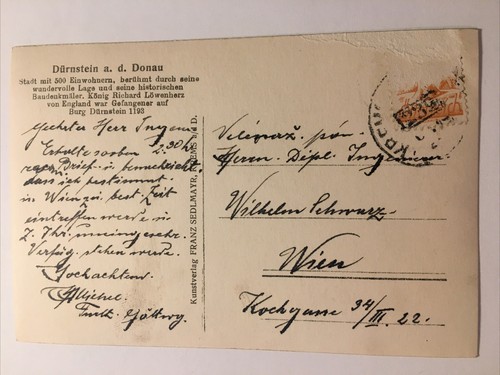 Dürnstein a. d. Donau
Stadt mit 500 Einwohnern, berühmt durch seine
wundervolle Lage und seine historischen
Baudenkmäler. König Richard Löwenherz
von England war Gefangener auf
Burg Dürnstein 1193
Geehrter Herr Ingen.
Erhalte soeben 2.30 h
Brief u.
dass ich bestimmt
in Wien zu best. Zeit
eintreffen werde u.
z. Ihr.
Verfüg. stehen werde.
Hochachtend
Kunstverlag FRANZ SEDLMAYR, KREMS a. D.
Herrn Dipl. Ingenieur
Wilhelm Schwarz
Wien
Kochgasse 34/III 22.